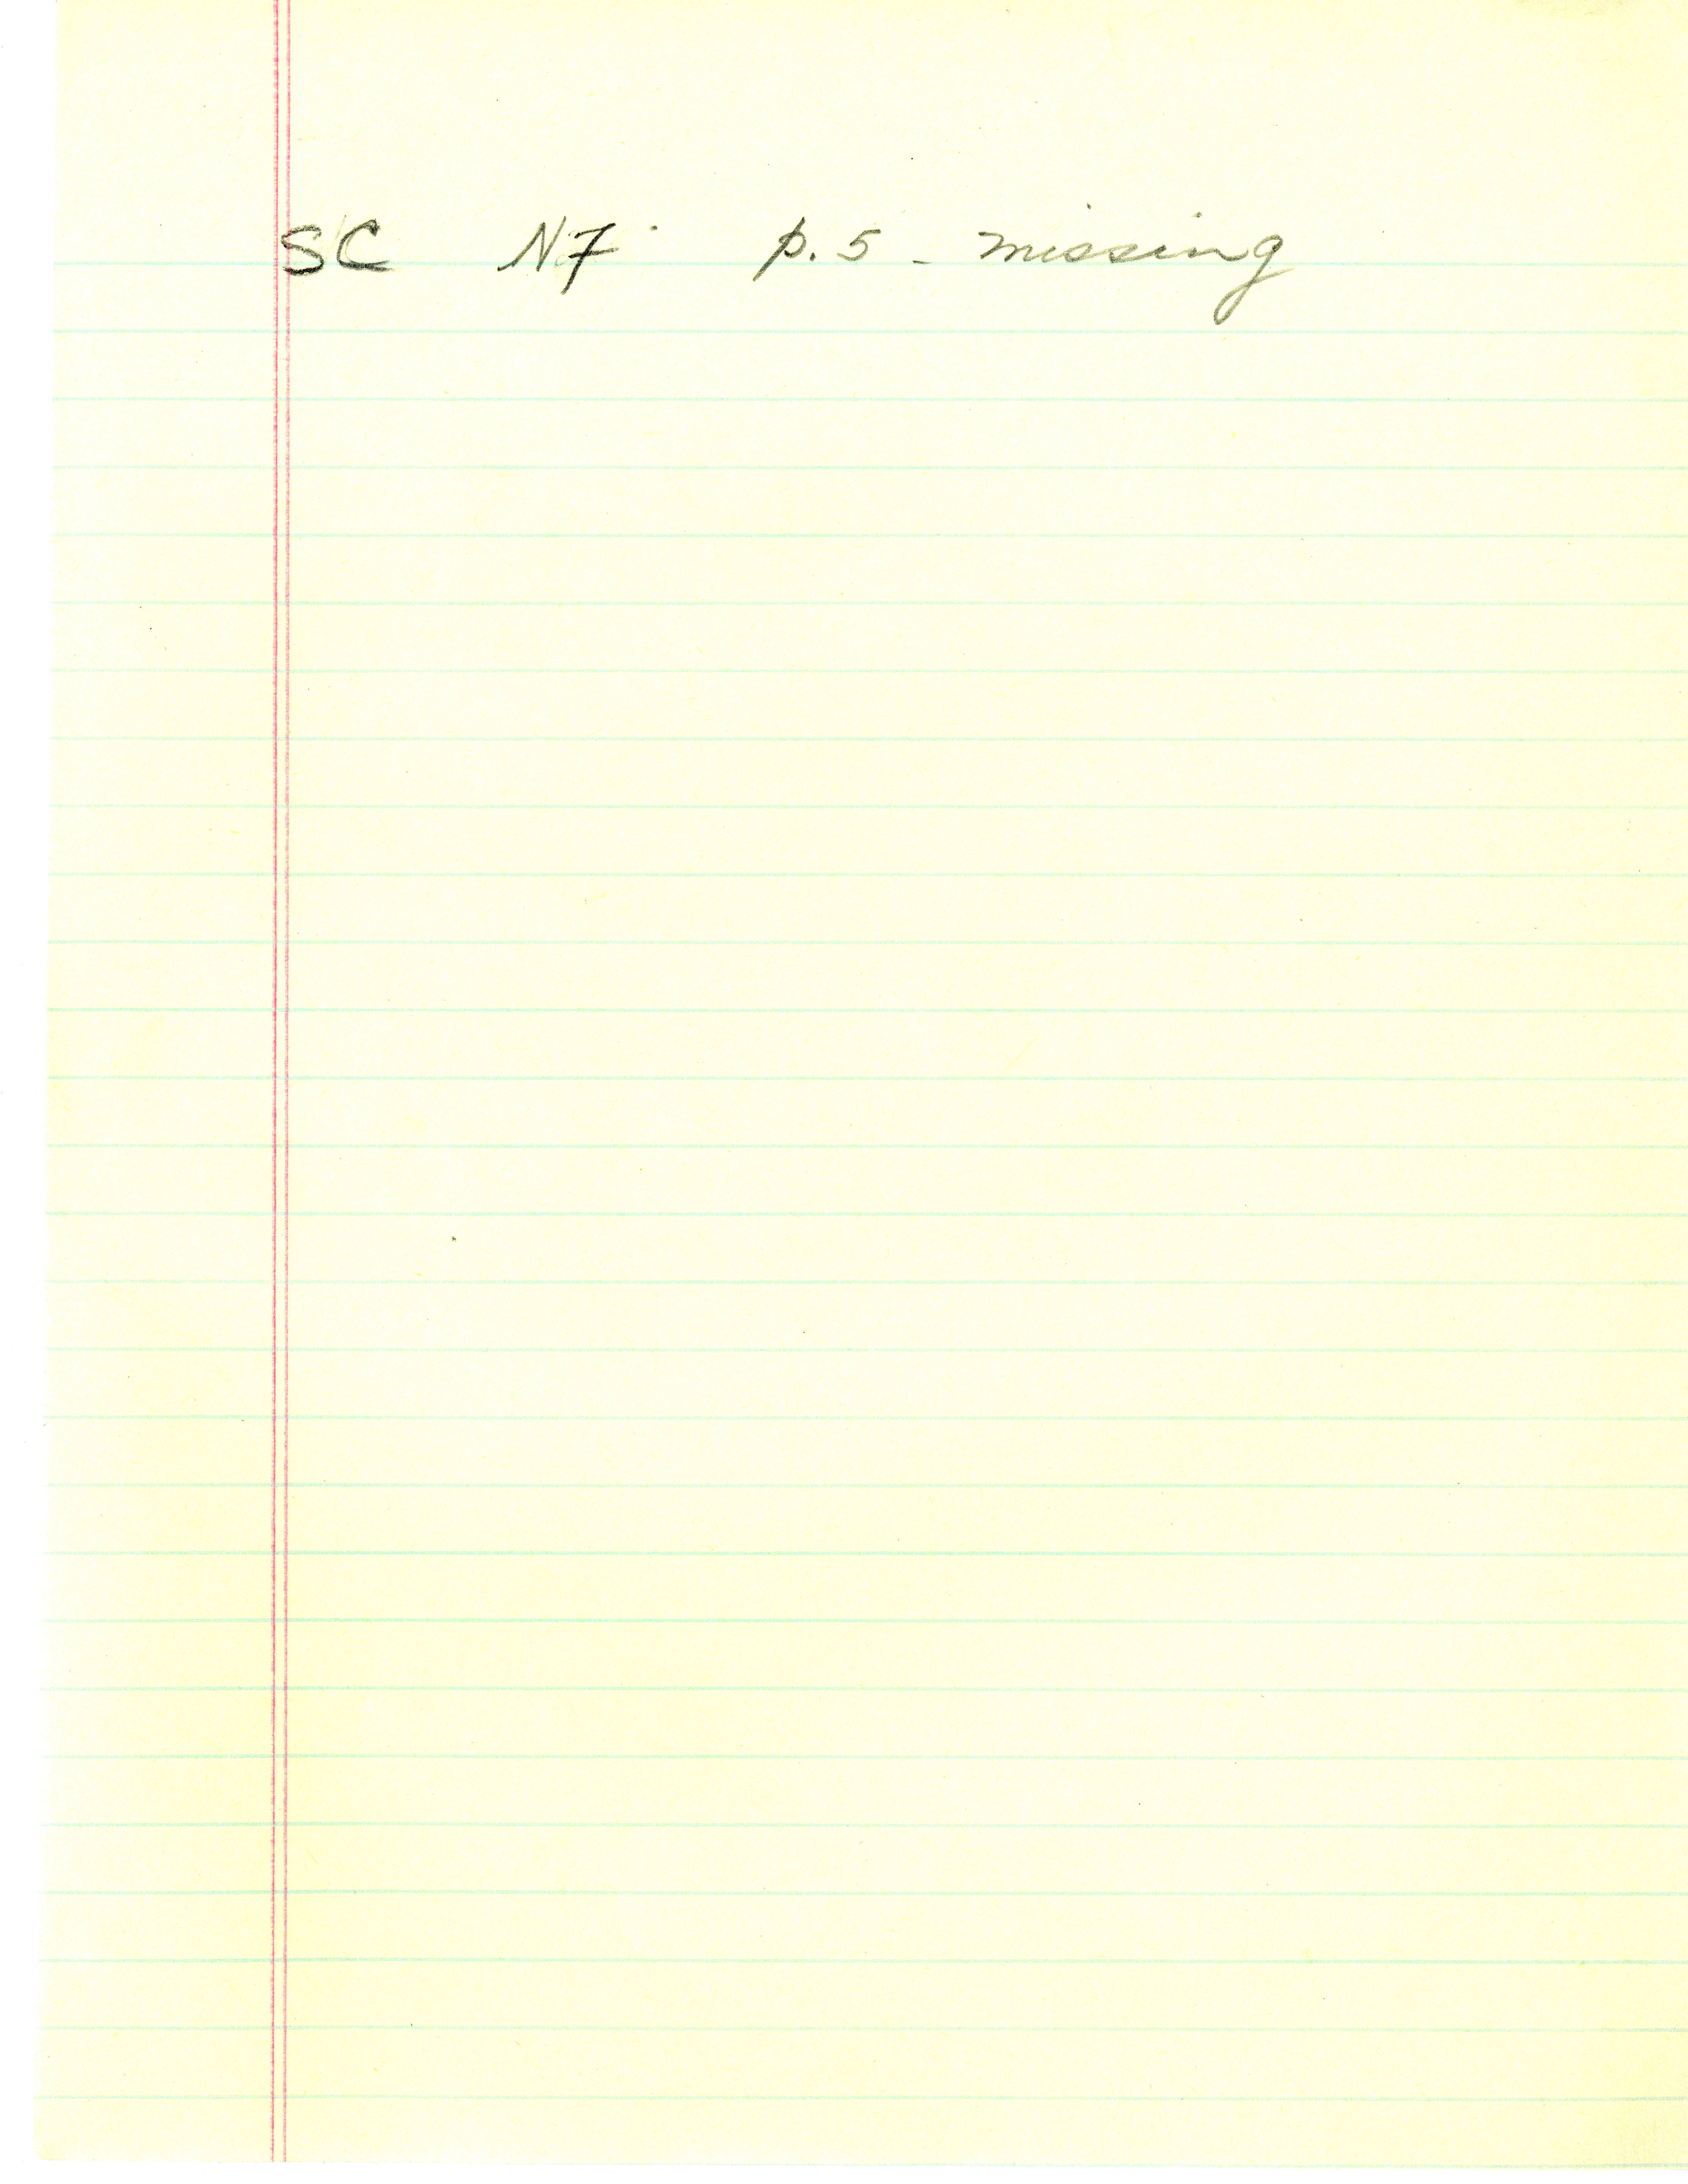 SC N7 p.5 - missing